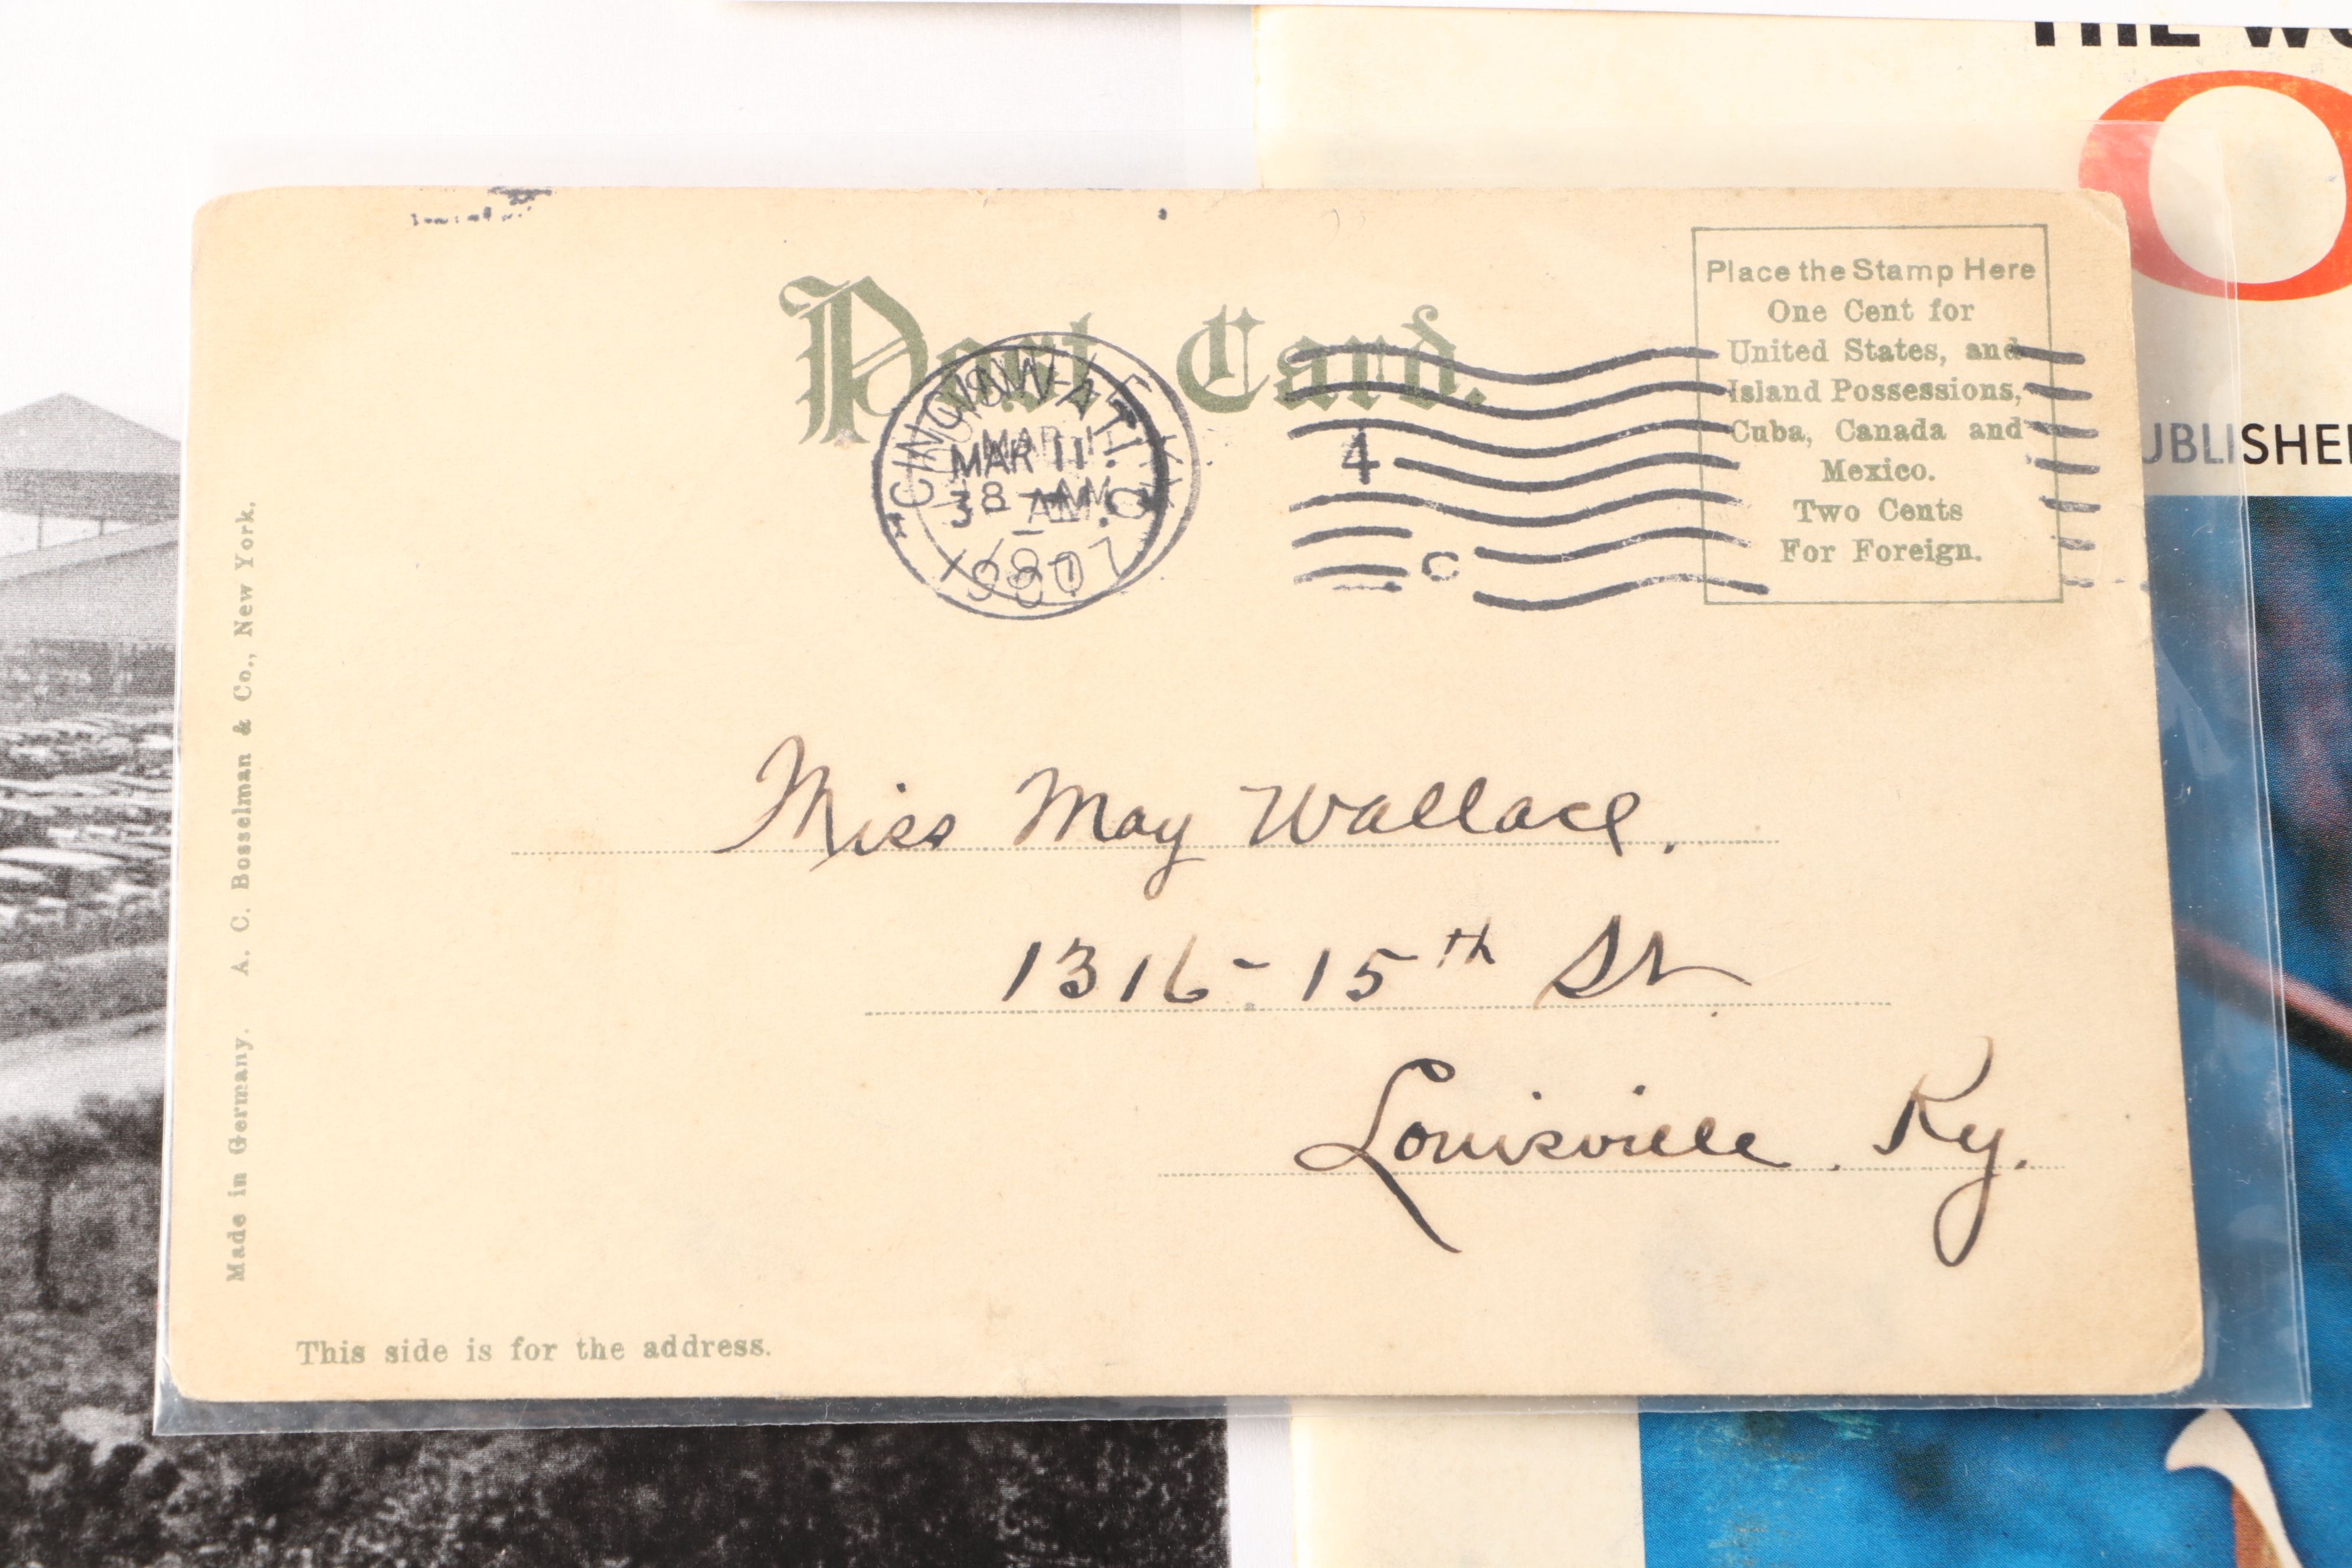 Post Card.
Place the Stamp Here
One Cent for
United States, and
Island Possessions,
Cuba, Canada and
Mexico.
Two Cents
For Foreign.
CINCINNATI
MAR 11
AM
1907
4
C
Miss May Wallace.
1316-15th St.
Louisville. Ky.
Made in Germany. A. C. Bosselman & Co., New York.
This side is for the address.
THE